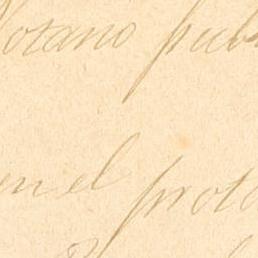 Notano pub
en el proto